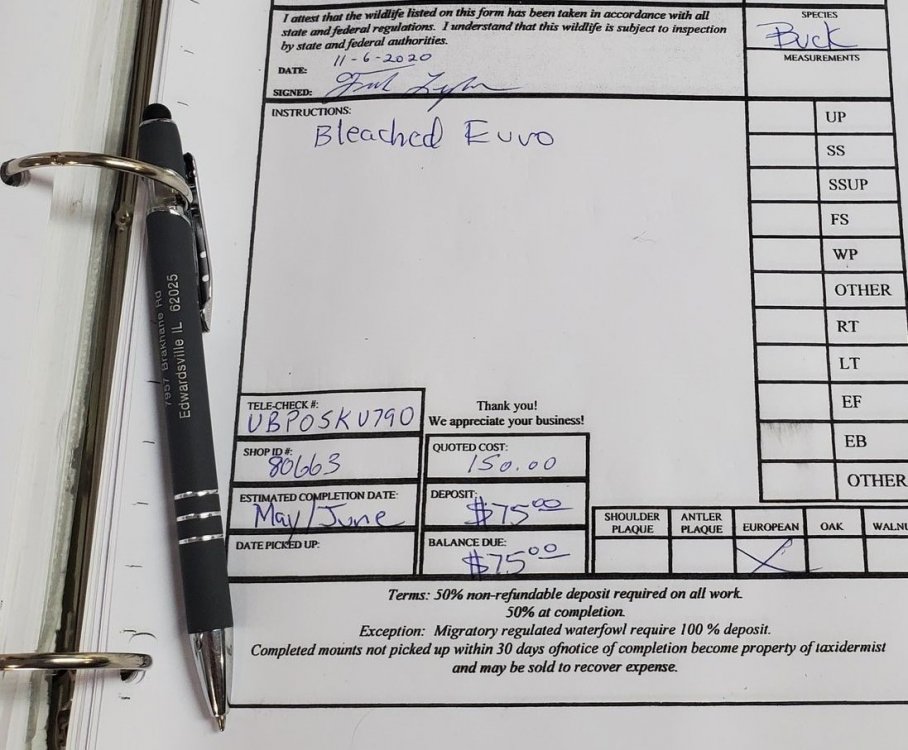 I attest that the wildlife listed on this form has been taken in accordance with all
state and federal regulations. I understand that this wildlife is subject to inspection
by state and federal authorities.
DATE: 11-6-2020
SIGNED:
SPECIES
Buck
MEASUREMENTS
INSTRUCTIONS:
Bleached Euro
UP
SS
SSUP
FS
WP
OTHER
RT
LT
EF
EB
OTHER
7957 Brakhane Rd
Edwardsville IL 62025
TELE-CHECK #:
UBPOSKU790
Thank you!
We appreciate your business!
SHOP ID #:
80663
QUOTED COST:
150.00
ESTIMATED COMPLETION DATE:
May/June
DEPOSIT:
$75.00
DATE PICKED UP:
BALANCE DUE:
$75.00
SHOULDER PLAQUE
ANTLER PLAQUE
EUROPEAN
OAK
WALNU
X
Terms: 50% non-refundable deposit required on all work.
50% at completion.
Exception: Migratory regulated waterfowl require 100 % deposit.
Completed mounts not picked up within 30 days ofnotice of completion become property of taxidermist
and may be sold to recover expense.